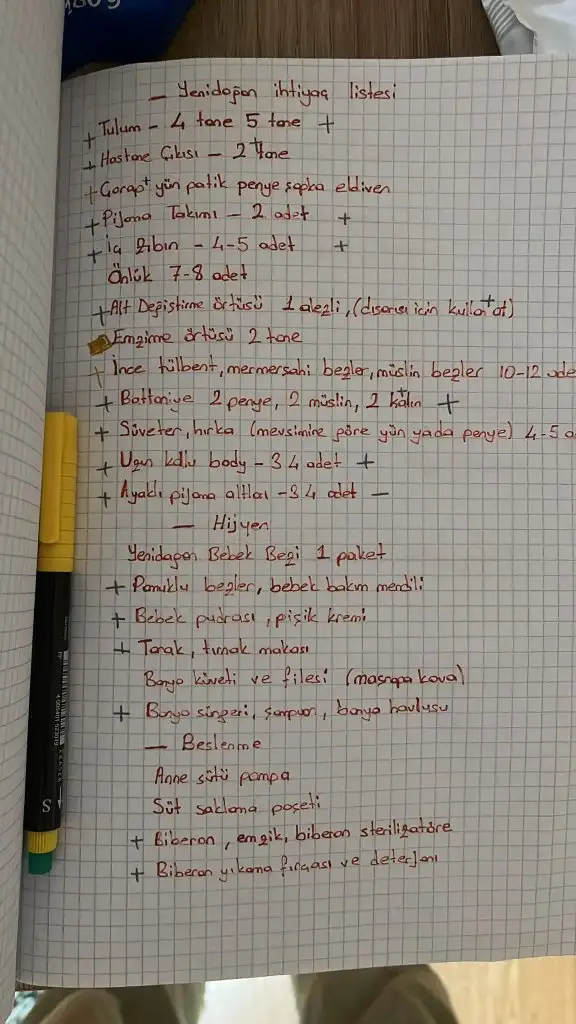 — Yenidoğan ihtiyaç listesi
+ Tulum - 4 tane 5 tane +
+ Hastane Çıkısı - 2 tane +
+ Çorap + yün patik penye şapka eldiven
+ Pijama Takımı - 2 adet +
+ İç Zıbın - 4-5 adet +
Önlük 7-8 adet
+ Alt Değistirme örtüsü 1 alezli, (dısarısı icin kullan at) +
Emzirme örtüsü 2 tane
+ İnce tülbent, mermerşahi bezler, müslin bezler 10-12 ade
+ Battaniye 2 penye, 2 müslin, 2 kalın +
+ Süveter, hırka (mevsimine göre yün yada penye) 4-5 a
+ Uzun kollu body - 3 4 adet +
+ Ayaklı pijama altları - 3 4 adet —
— Hijyen
Yenidogan Bebek Bezi 1 paket
+ Pamuklu bezler, bebek bakım mendili
+ Bebek pudrası, pişik kremi
+ Tarak, tırnak makası
Banyo küveti ve filesi (maşrapa kova)
+ Banyo süngeri, şampuan, banyo havlusu
— Beslenme
Anne sütü pompa
Süt saklama poşeti
+ Biberon, emzik, biberon sterilizatöre
+ Biberon yıkama fırçası ve deterjanı
S